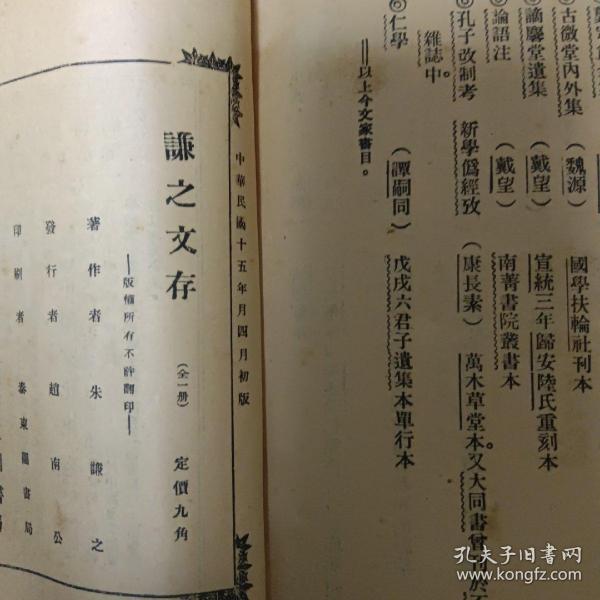 古微堂內外集 （魏源） 國學扶輪社刊本
謫麐堂遺集 （戴望） 宣統三年歸安陸氏重刻本
論語注 （戴望） 南菁書院叢書本
孔子改制考 新學僞經攷 （康長素） 萬木草堂本。又大同書曾刊於不
雜誌中。
仁學 （譚嗣同） 戊戌六君子遺集本單行本
——以上今文家書目。
中華民國十五年月四月初版
謙之文存 （全一册） 定價九角
——版權所有不許翻印——
著作者 朱謙之
發行者 趙南公
印刷者 泰東圖書局
孔夫子旧书网
www.kongfz.com